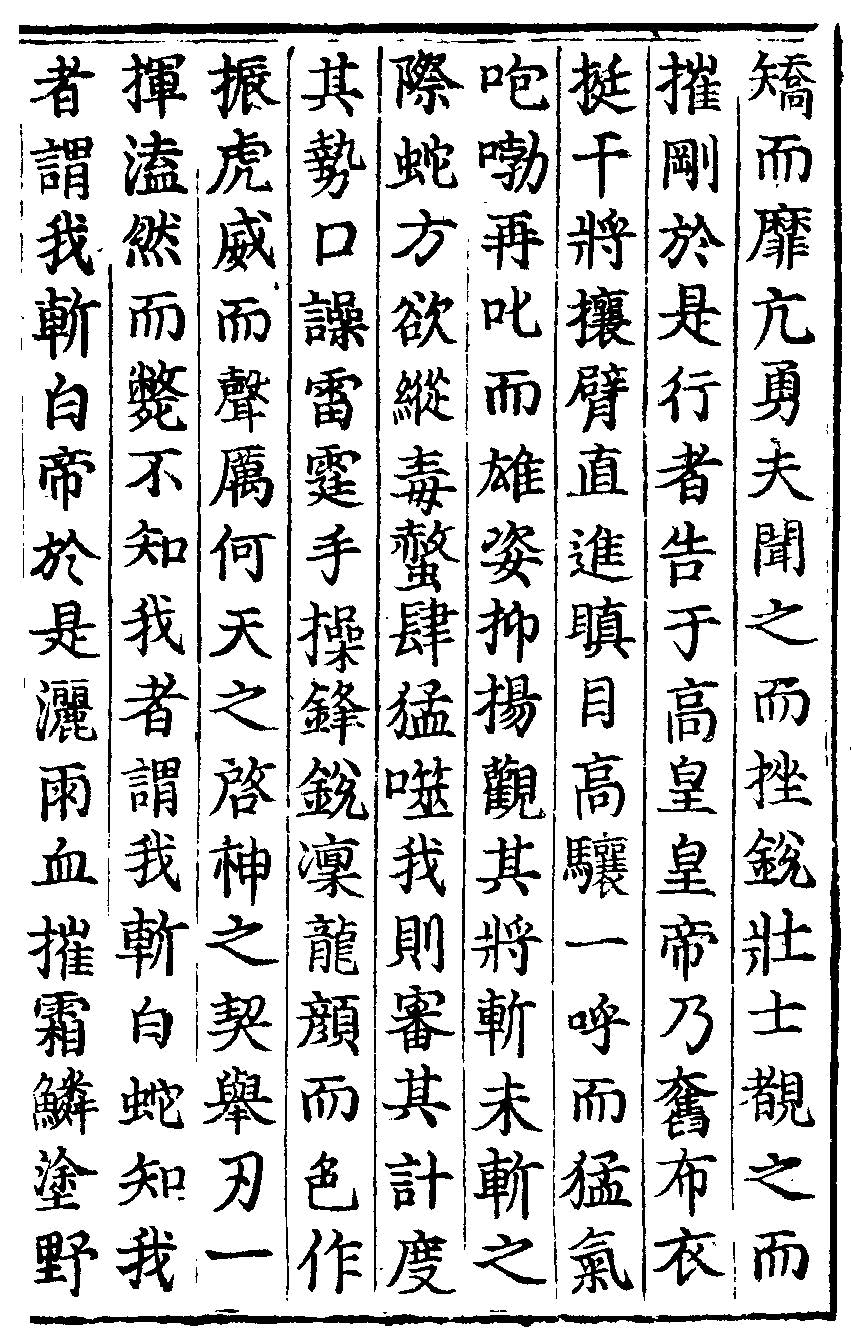 矯而靡亢勇夫聞之而挫銳壯士覩之而
摧剛於是行者告于高皇皇帝乃奮布衣
挺干將攘臂直進瞋目高驤一呼而猛氣
咆哮再叱而雄姿抑揚觀其將斬未斬之
際蛇方欲縱毒螫肆猛噬我則審其計度
其勢口譟雷霆手操鋒銳凜龍顔而色作
振虎威而聲厲何天之啓神之契舉刃一
揮溘然而斃不知我者謂我斬白蛇知我
者謂我斬白帝於是灑雨血摧霜鱗塗野